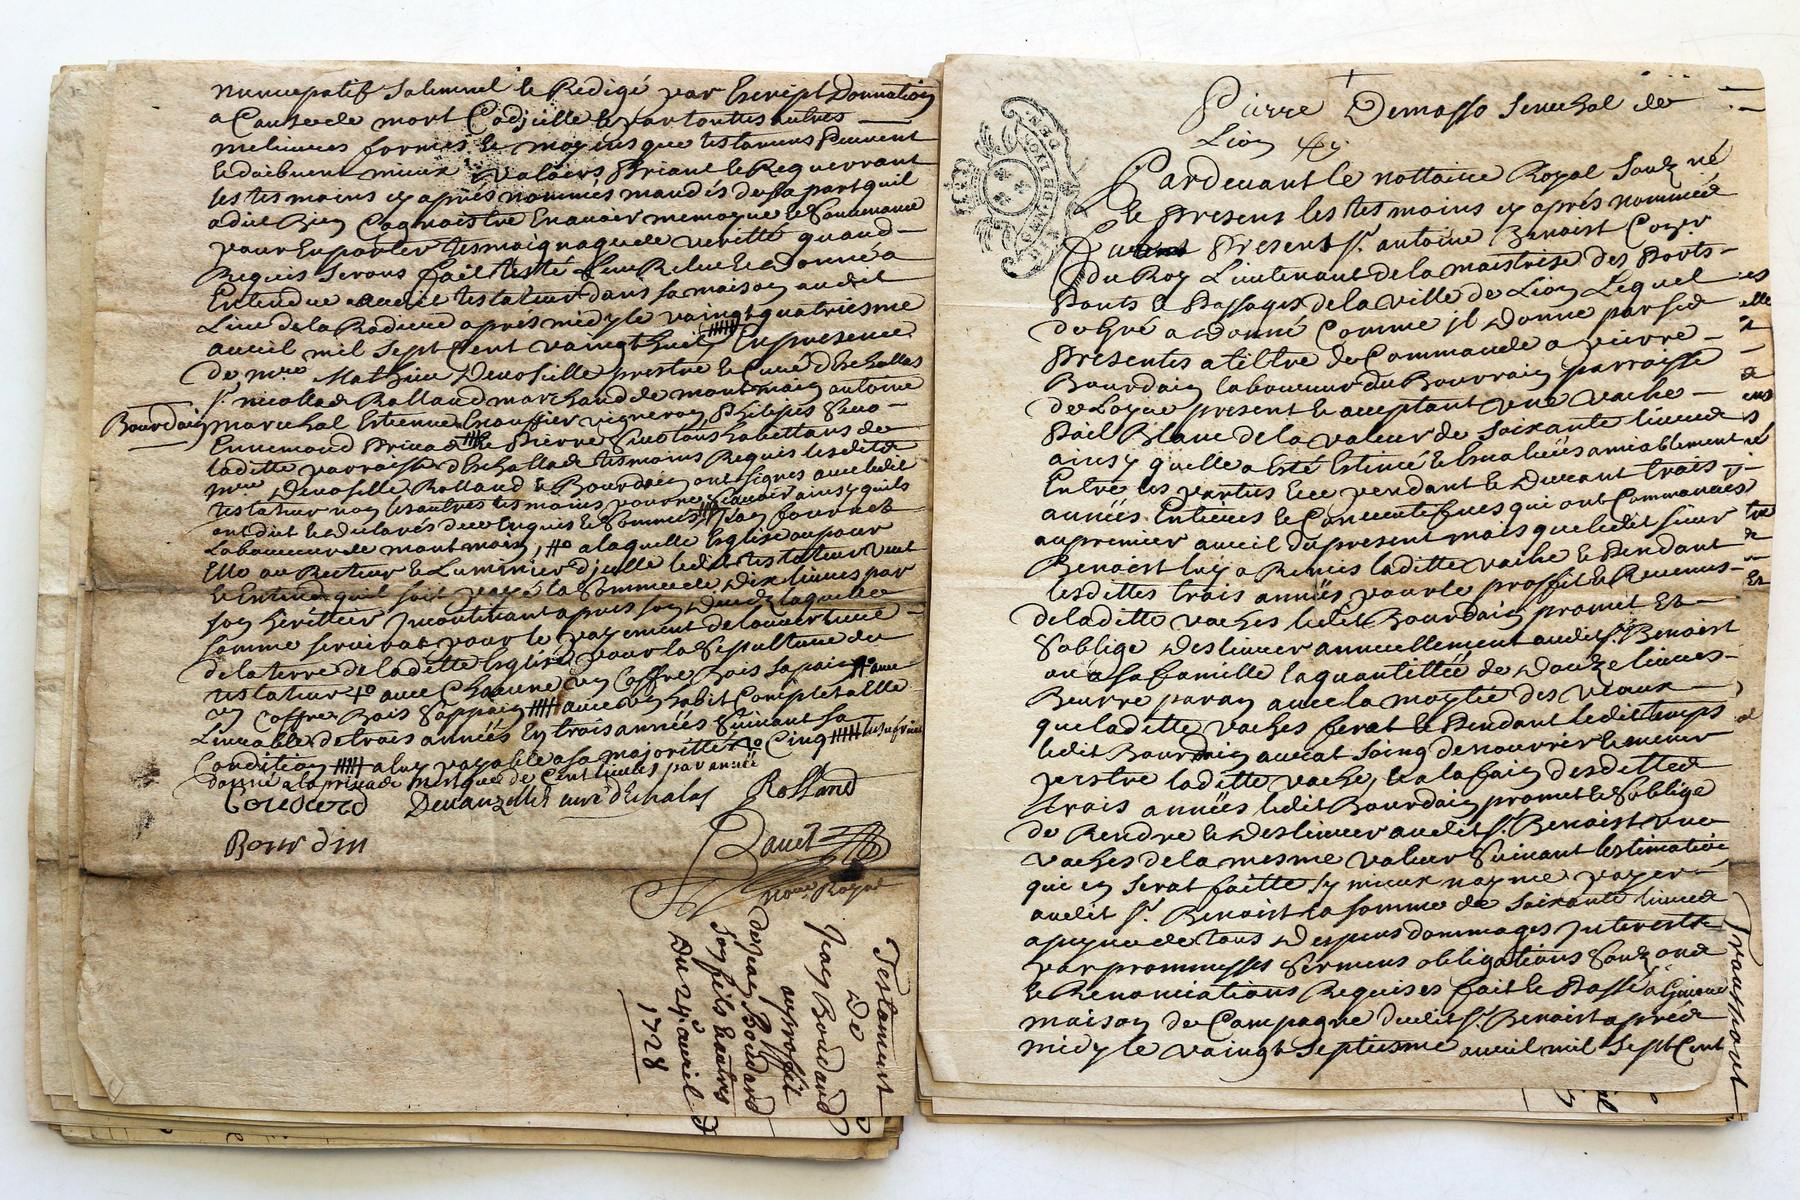 nuncupatif Solemnel le Redigé par Escript Donnation
a Cause de mort Codicille & par touttes autres
melieures formes & moyens que testamens peuvent
& doibvent mieux Valoirs Priant & Requerrant
les tesmoins cy après nommés mandés de sa part quil
a dict Bien Cognoistre En avoir memoyre & Souvenance
pour En porter tesmoignage de veritté quand
Requis Serons fait testé Leu Relu & donné a
Entendre audit testateur dans sa maison audit
Lieu de la Rodiere après midy le vaingt quatriesme
avril mil Sept Cent vaingt huit En presence
de mre Mathieu Devoselle prestre & Curé d'Echallas
sr nicollas Rolland marchand de montmain antoine
Bourdain
marechal Estienne Chauffier vigneron Philipes
Ennemond & Pierre habittans de
laditte parroisse d'Echallas tesmoins Requis lesdits
mre Devoselle Rolland & Bourdain ont signés avec ledit
testateur non les autres tesmoins pour ne Scavoir ainsy quils
ont dit & declarés de ce Enquis & Sommés Jean fournet
Laboureur de montmain, a laquelle Eglise ou pour
Elle au Recteur & Luminier d'jcelle ledit testateur veut
& Entend quil soit payé la Somme de Dix livres par
son herittier Jncontinant apres son Decès laquelle
somme servirat pour le payement de louverture
de la terre de laditte Eglise pour la Sepulture du
testateur avec Chacune un Coffre Bois Sapain avec
un Coffre Bois Sappain avec son habit Complet
Lincable de trois années En trois années Suivant sa
Condition a luy payable a sa majoritté Cinq
donné a la prisade de Cent livres par année
Rolland
Bourdin
Bauet
nore Royal
Testament
De
Jean Boudard
au proffit
de Jean Boudard
son fils & autres
Du 24e avril
1728
Pierre Demasso Senechal de
Lion
GEN. DE LYON
Pardevant le nottaire Royal Soubzné
& presens les tesmoins cy après nommés
Present sr antoine Benoist Coner
du Roy Lieutenant de la maistrise des Ports
Ponts & Passages de la ville de Lion Lequel
de Gré a donné Comme jl Donne par ses
Presentes a tiltre de Commande a pierre
Bourdain laboureur du Bourrain parroisse
de Loyre present & acceptant une vache
Poil Blanc de la valeur de Soixante livres
ainsy quelle a Esté Estimée & Evaluée amiablement
Entre les parties & ce pendant & durant trois
années Entieres & Consecutifves qui ont Commancés
au premier avril du present mois que ledit sieur
Benoist luy a Remis laditte vache & Pendant
lesdittes trois années pour le proffit & Revenus
de laditte vaches ledit Bourdain promet Et
Soblige Deslivrer annuellement audit sr Benoist
ou a sa famille la quantittée de Douze livres
Beurre par an avec la moytié des Veaux
que laditte vaches ferat & Pendant ledit temps
ledit Bourdain aurat Soing de nourrir & mener
pestre laditte vache, & a la fain desdittes
trois années ledit Bourdain promet & Soblige
de Rendre & Deslivrer audit sr Benoist une
vaches de la mesme valeur Suivant lestimation
qui en serat faitte sy mieux nayme payer
audit sr Benoist la somme de Soixante livres
a peyne de tous Despens dommages Jnterests
par prommesses Sermens obligations Soubz
& Renonciations Requises fait & Passé a
maison de Campagne dudit sr Benoist après
midy le vaingt Septiesme avril mil Sept Cent